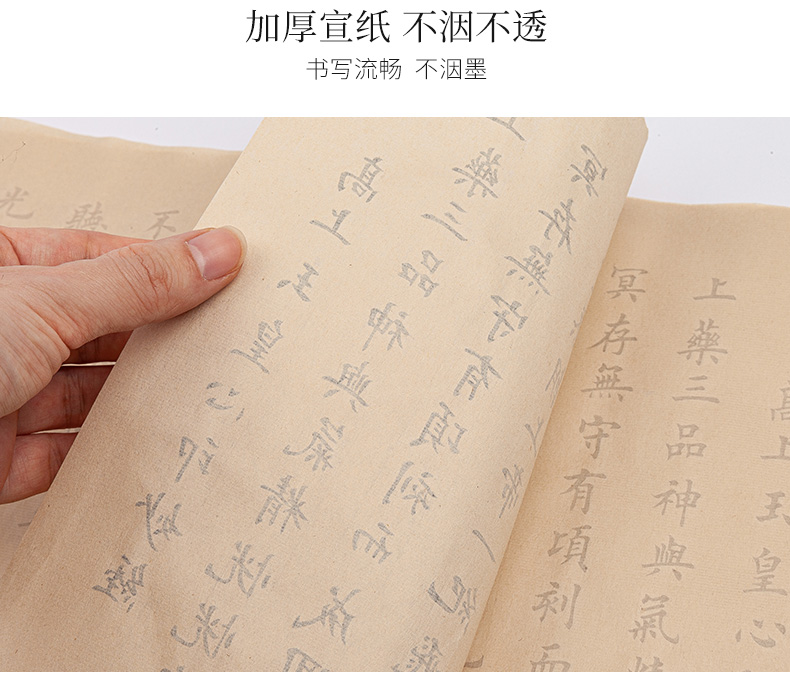 加厚宣纸 不洇不透
书写流畅 不洇墨
不
聽
光
高上玉皇心印妙經
上藥三品神與氣精恍恍
存無守有頃刻而成
高上玉皇心
上藥三品神與氣精
冥存無守有頃刻而